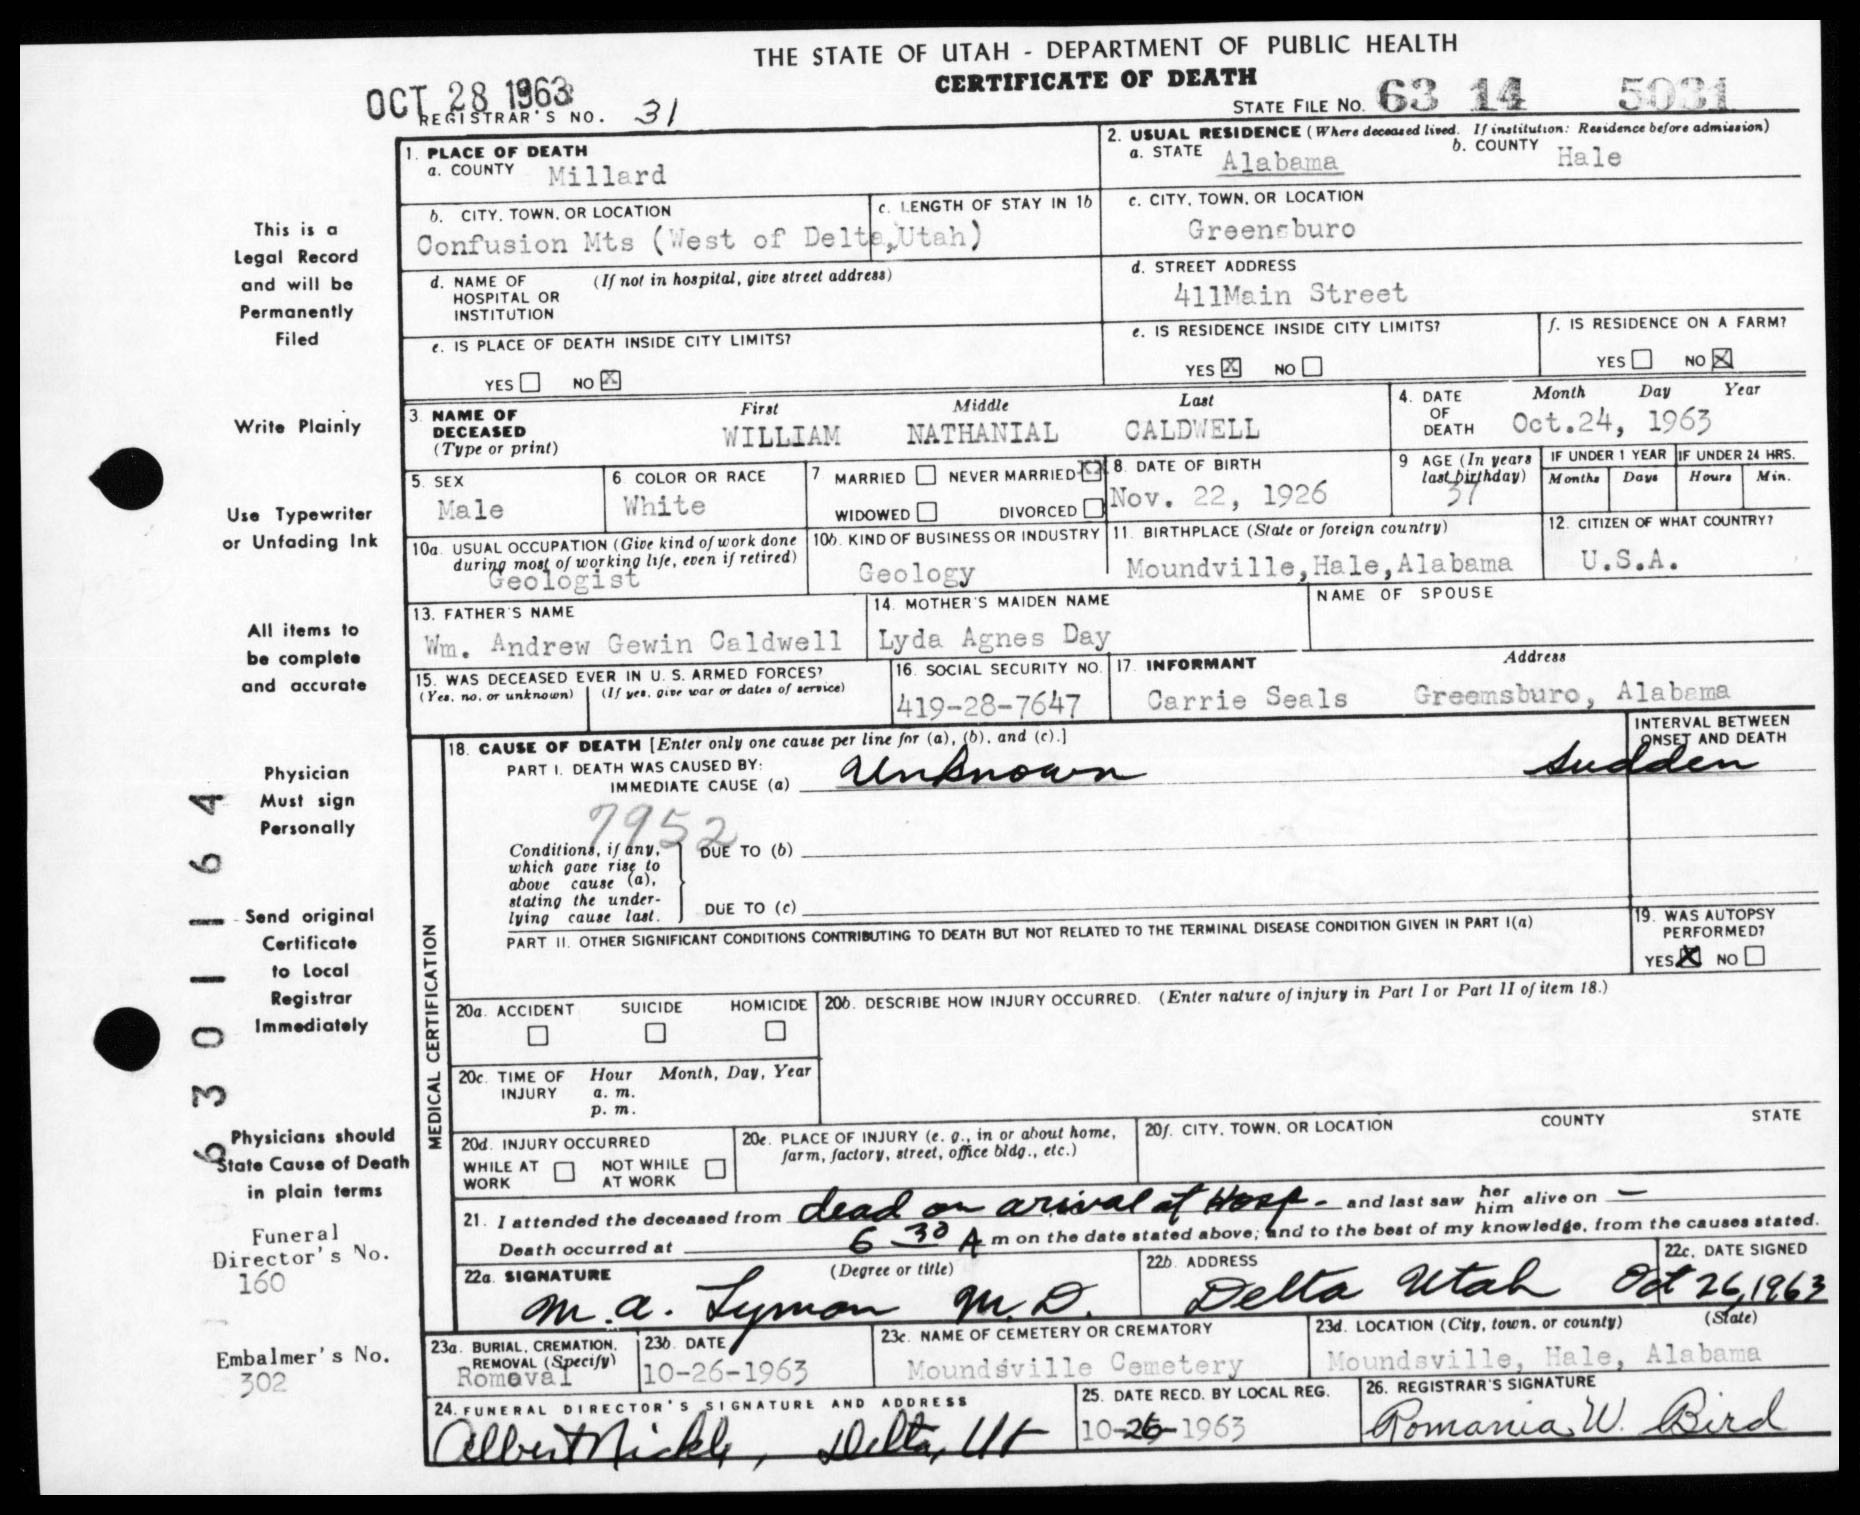 THE STATE OF UTAH - DEPARTMENT OF PUBLIC HEALTH
CERTIFICATE OF DEATH
OCT 28 1963
REGISTRAR'S NO. 31
STATE FILE NO. 63 14 5031
1. PLACE OF DEATH
a. COUNTY Millard
2. USUAL RESIDENCE (Where deceased lived. If institution: Residence before admission)
a. STATE Alabama b. COUNTY Hale
b. CITY, TOWN, OR LOCATION
Confusion Mts (West of Delta, Utah)
c. LENGTH OF STAY IN 1b
c. CITY, TOWN, OR LOCATION
Greensburo
d. NAME OF HOSPITAL OR INSTITUTION (If not in hospital, give street address)
d. STREET ADDRESS
411Main Street
e. IS PLACE OF DEATH INSIDE CITY LIMITS?
YES NO X
e. IS RESIDENCE INSIDE CITY LIMITS?
YES X NO
f. IS RESIDENCE ON A FARM?
YES NO X
3. NAME OF DECEASED (Type or print)
First Middle Last
WILLIAM NATHANIAL CALDWELL
4. DATE OF DEATH Month Day Year
Oct.24, 1963
5. SEX
Male
6. COLOR OR RACE
White
7 MARRIED NEVER MARRIED X
WIDOWED DIVORCED
8. DATE OF BIRTH
Nov. 22, 1926
9 AGE (In years last birthday)
37
IF UNDER 1 YEAR
Months Days
IF UNDER 24 HRS.
Hours Min.
10a. USUAL OCCUPATION (Give kind of work done during most of working life, even if retired)
Geologist
10b. KIND OF BUSINESS OR INDUSTRY
Geology
11. BIRTHPLACE (State or foreign country)
Moundville,Hale,Alabama
12. CITIZEN OF WHAT COUNTRY?
U.S.A.
13. FATHER'S NAME
Wm. Andrew Gewin Caldwell
14. MOTHER'S MAIDEN NAME
Lyda Agnes Day
NAME OF SPOUSE
15. WAS DECEASED EVER IN U. S. ARMED FORCES?
(Yes, no, or unknown) (If yes, give war or dates of service)
16. SOCIAL SECURITY NO.
419-28-7647
17. INFORMANT Address
Carrie Seals Greemsburo, Alabama
MEDICAL CERTIFICATION
18. CAUSE OF DEATH [Enter only one cause per line for (a), (b), and (c).]
INTERVAL BETWEEN ONSET AND DEATH
PART I. DEATH WAS CAUSED BY:
IMMEDIATE CAUSE (a) Unknown sudden
7952
Conditions, if any, which gave rise to above cause (a), stating the underlying cause last.
DUE TO (b)
DUE TO (c)
PART II. OTHER SIGNIFICANT CONDITIONS CONTRIBUTING TO DEATH BUT NOT RELATED TO THE TERMINAL DISEASE CONDITION GIVEN IN PART I(a)
19. WAS AUTOPSY PERFORMED?
YES X NO
20a. ACCIDENT SUICIDE HOMICIDE
20b. DESCRIBE HOW INJURY OCCURRED. (Enter nature of injury in Part I or Part II of item 18.)
20c. TIME OF INJURY Hour a. m. p. m. Month, Day, Year
20d. INJURY OCCURRED
WHILE AT WORK NOT WHILE AT WORK
20e. PLACE OF INJURY (e. g., in or about home, farm, factory, street, office bldg., etc.)
20f. CITY, TOWN, OR LOCATION COUNTY STATE
21. I attended the deceased from dead on arival at Hosp - and last saw her him alive on —
Death occurred at 6 30 A m on the date stated above; and to the best of my knowledge, from the causes stated.
22a. SIGNATURE (Degree or title)
M. A. Lyman M.D.
22b. ADDRESS
Delta Utah
22c. DATE SIGNED
Oct 26, 1963
23a. BURIAL, CREMATION, REMOVAL (Specify)
Romoval
23b. DATE
10-26-1963
23c. NAME OF CEMETERY OR CREMATORY
Moundsville Cemetery
23d. LOCATION (City, town, or county) (State)
Moundsville, Hale, Alabama
24. FUNERAL DIRECTOR'S SIGNATURE AND ADDRESS
Albert Nickle, Delta, Ut
25. DATE RECD. BY LOCAL REG.
10-26-1963
26. REGISTRAR'S SIGNATURE
Romania W. Bird
This is a
Legal Record
and will be
Permanently
Filed
Write Plainly
Use Typewriter
or Unfading Ink
All items to
be complete
and accurate
Physician
Must sign
Personally
Send original
Certificate
to Local
Registrar
Immediately
Physicians should
State Cause of Death
in plain terms
Funeral
Director's No.
160
Embalmer's No.
302
6301164